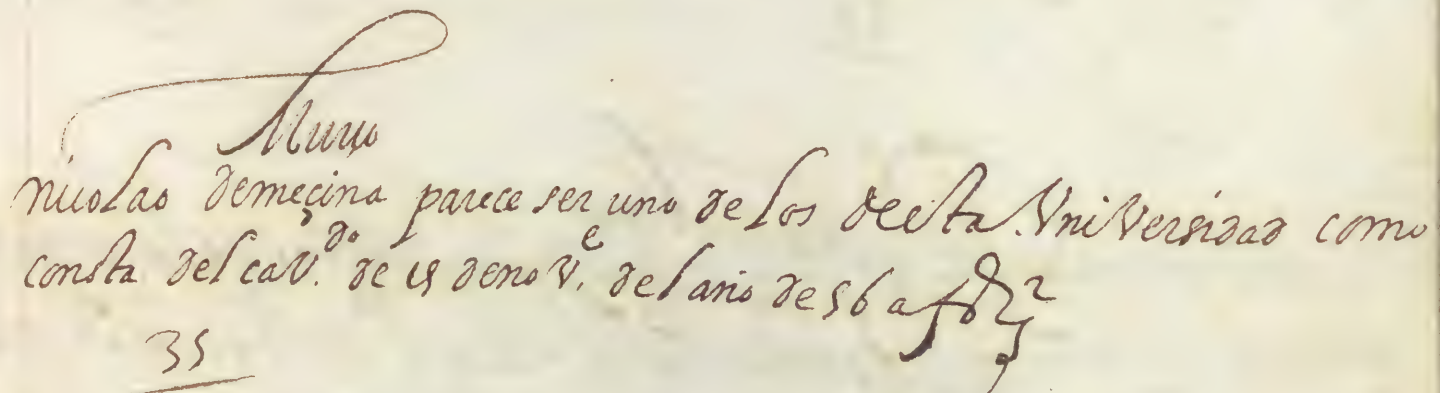 Muro
nicolao demeçina parece ser uno de los deesta VniVersidad como
consta del caV.do de 15 de noV.e del año de 56 a fo
35